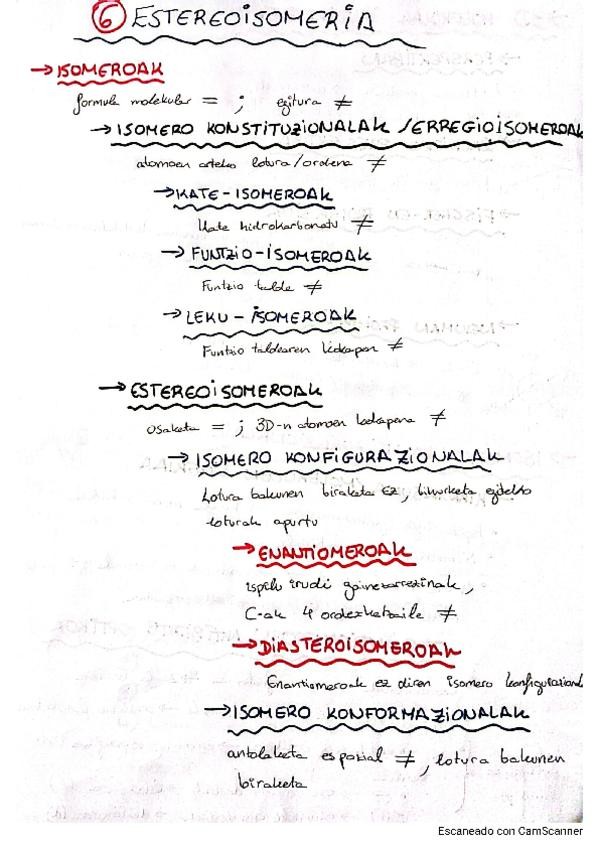 6 ESTEREOISOMERIA
→ ISOMEROAK
formula molekular = ; egitura ≠
→ ISOMERO KONSTITUZIONALAK / ERREGIOISOMEROAK
atomoen arteko lotura/ordena ≠
→ KATE-ISOMEROAK
Kate hidrokarbonatu ≠
→ FUNTZIO-ISOMEROAK
Funtzio talde ≠
→ LEKU-ISOMEROAK
Funtzio taldearen kokapen ≠
→ ESTEREOISOMEROAK
osaketa = ; 3D-n atomoen kokapena ≠
→ ISOMERO KONFIGURAZIONALAK
Lotura bakunen biraketa ez,
loturak apurtu
→ ENANTIOMEROAK
ispilu irudi gainezarrezinak,
C-ak 4 ordezkatzaile ≠
→ DIASTEROISOMEROAK
Enantiomeroak ez diren isomero
→ ISOMERO KONFORMAZIONALAK
antolaketa espazial ≠, lotura bakunen
biraketa
Escaneado con CamScanner